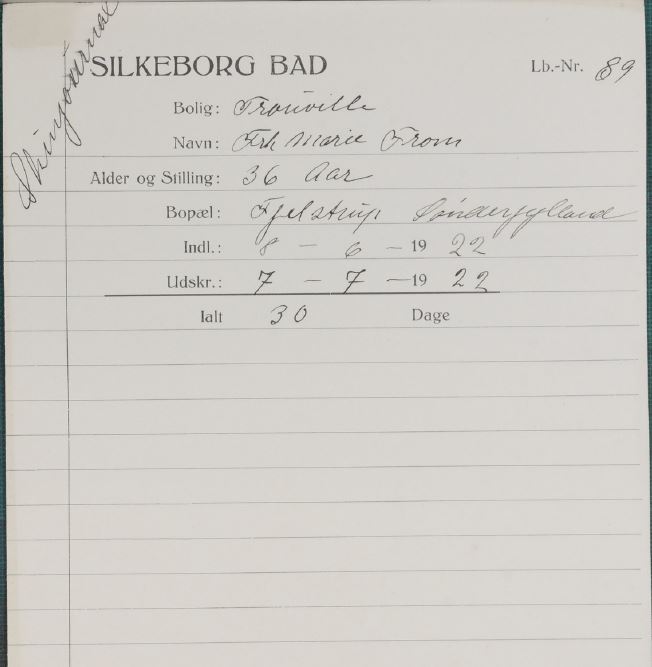 Skinjournal
SILKEBORG BAD Lb.-Nr. 89
Bolig: Trouville
Navn: Frk Marie From
Alder og Stilling: 36 Aar
Bopæl: Fjelstrup Sønderjylland
Indl.: 8 – 6 – 19 22
Udskr.: 7 – 7 – 19 22
Ialt 30 Dage